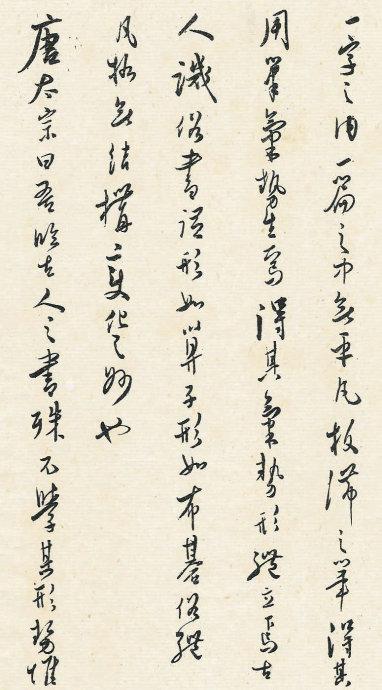 一字之内一篇之中無平凡板滞之筆得其
用筆氣勢生焉得其氣勢形體立焉古
人譏俗書謂形如算子形如布棊俗體
凡格無結構變化之妙也
唐太宗曰吾臨古人之書殊不學其形勢惟